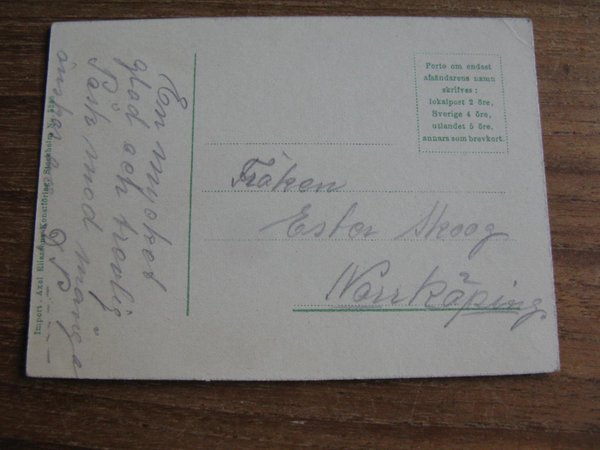 En mycket
glad och trevlig
Påsk med många
önskar
Porto om endast
afsändarens namn
skrifves:
lokalpost 2 öre,
Sverige 4 öre,
utlandet 5 öre,
annars som brevkort.
Fröken
Ester Skoog
Norrköping
Import. Axel Eliassons Konstförlag, Stockholm